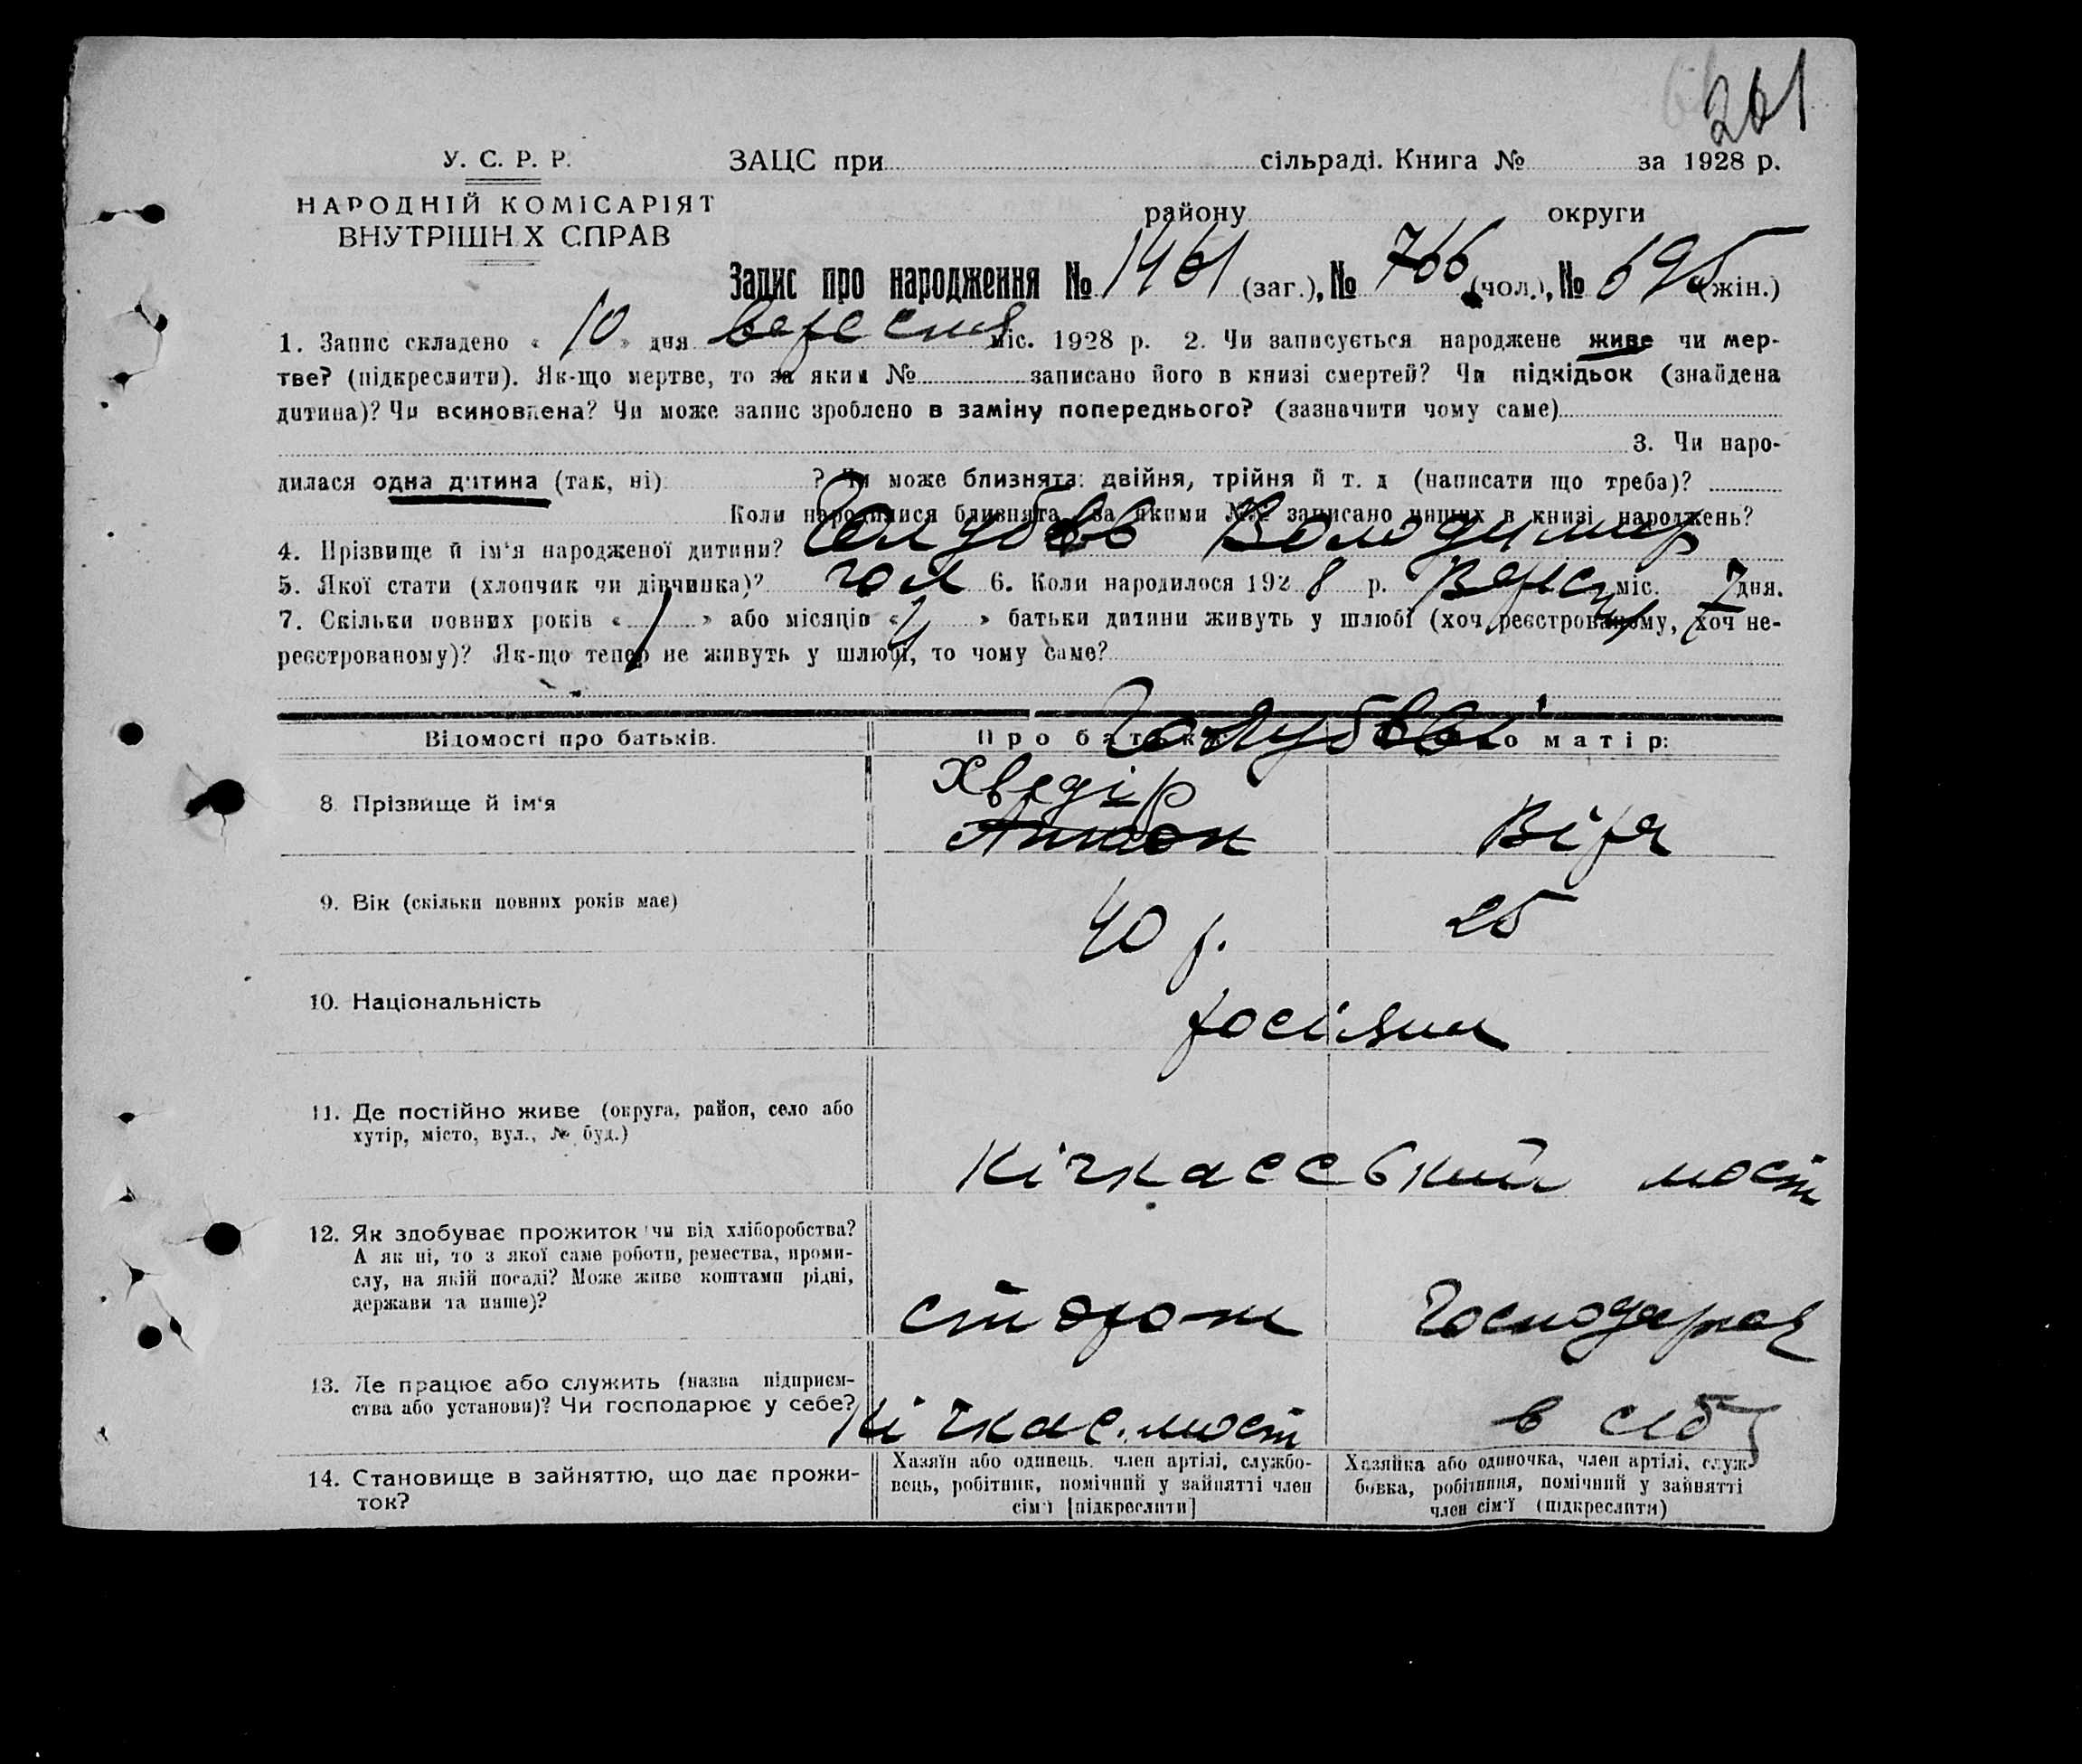 201
У. С. Р. Р. ЗАЦС при сільраді. Книга № за 1928 р.
НАРОДНІЙ КОМІСАРІЯТ
району округи
ВНУТРІШН Х СПРАВ
Запис про народження № 1461 (заг.), № 766 (чол.), № 695 (жін.)
1. Запис складено « 10 » дня вересня міс. 1928 р. 2. Чи записується народжене живе чи мер-
тве? (підкреслити). Як-що мертве, то за яким № записано його в книзі смертей? Чи підкідьок (знайдена
дитина)? Чи всиновлена? Чи може запис зроблено в заміну попереднього? (зазначити чому саме)
3. Чи наро-
дилася одна дитина (так, ні) ? Чи може близнята: двійня, трійня й т. д (написати що треба)?
Коли народилися близнята, за якими №№ записано инших в книзі народжень?
4. Прізвище й ім'я народженої дитини? Голубєв Володимир
5. Якої стати (хлопчик чи дівчинка)? чол 6. Коли народилося 1928 р. Вересня міс. 7 дня.
7. Скільки повних років « / » або місяців « » батьки дитини живуть у шлюбі (хоч реєстрованому, хоч не-
реєстрованому)? Як-що тепер не живуть у шлюбі, то чому саме?
Голубєви
Відомості про батьків. Про батька: Про матір:
Хведір
8. Прізвище й ім'я Антон Віра
9. Вік (скільки повних років має) 40 р. 25
10. Національність росіяни
11. Де постійно живе (округа, район, село або
хутір, місто, вул., № буд.)
Кічкасський мост
12. Як здобуває прожиток чи від хліборобства?
А як ні, то з якої саме роботи, ремества, проми-
слу, на якій посаді? Може живе коштами рідні,
держави та инше)?
сторож Господарює
13. Де працює або служить (назва підприєм-
ства або установи)? Чи господарює у себе?
Кічкас. мост в себе
14. Становище в зайняттю, що дає прожи-
ток?
Хазяїн або одинець, член артілі, службо-
вець, робітник, помічний у зайнятті член
сім'ї [підкреслити]
Хазяйка або одиночка, член артілі, служ-
бовка, робітниця, помічний у зайнятті
член сім'ї (підкреслити)